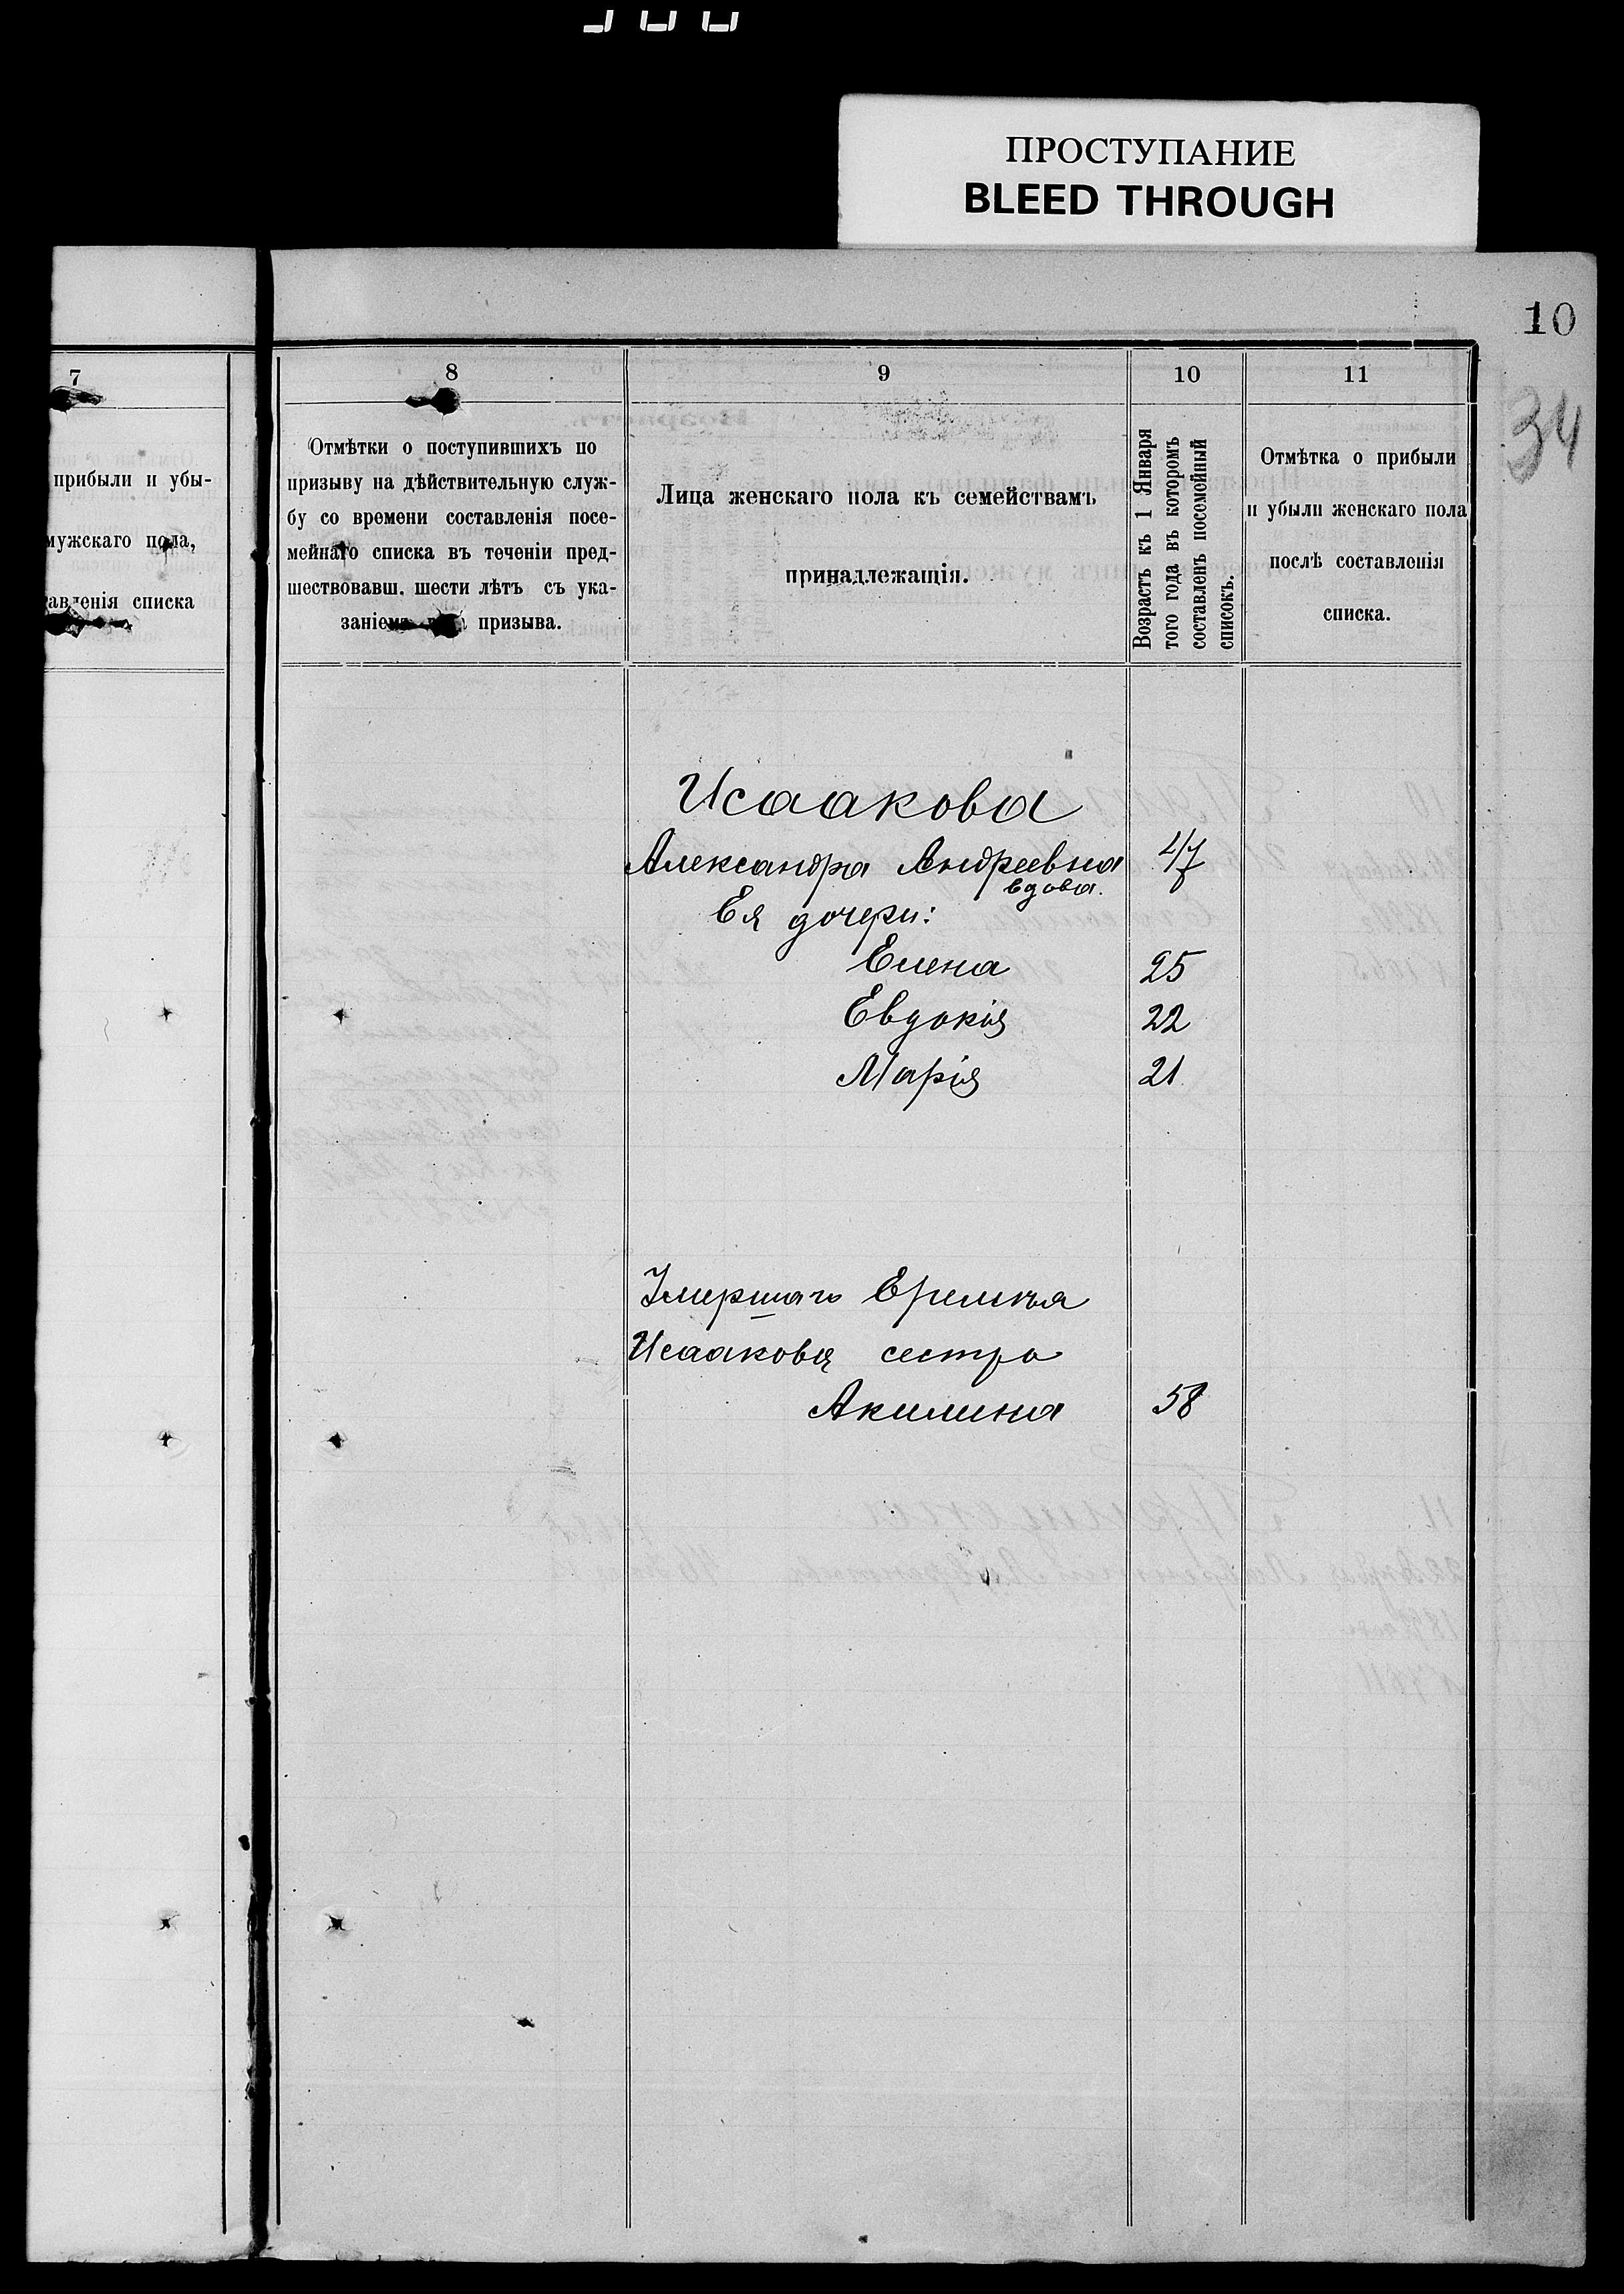 ПРОСТУПАНИЕ
BLEED THROUGH
10
34
7
прибыли и убы-
мужскаго пола,
авленія списка
8
Отмѣтки о поступившихъ по
призыву на дѣйствительную служ-
бу со времени составленія посе-
мейнаго списка въ теченіи пред-
шествовавш. шести лѣтъ съ ука-
заніемъ призыва.
9
Лица женскаго пола къ семействамъ
принадлежащія.
10
Возрастъ къ 1 Января
того года въ которомъ
составленъ посемейный
списокъ.
11
Отмѣтка о прибыли
и убыли женскаго пола
послѣ составленія
списка.
Исаакова
Александра Андреевна 47
вдова.
Ея дочери:
Елена 25
Евдокія 22
Марія 21
Умершаго Еремѣя
Исаакова сестра
Акилина 58